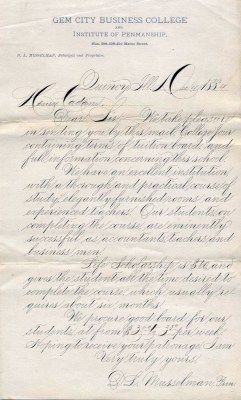 GEM CITY BUSINESS COLLEGE
AND
INSTITUTE OF PENMANSHIP,
D. L. MUSSELMAN, Principal and Proprietor.
Quincy, Ill. 188
Dear Sir We take pleasure
in sending you by this mail College Jour
containing terms of tuition board and
full information concerning this school.
We have an excellent institution
with a thorough and practical course of
study, elegantly furnished rooms and
experienced teachers. Our students on
completing the course are eminently
successful as accountants, teachers and
business men.
Life Scholarship is and
gives the student all the time desired to
complete the course, which usually re
quires about six months.
We procure good board for our
students at from to per week
Hoping to receive your patronage I am
Very truly yours
D. L. Musselman, Prin